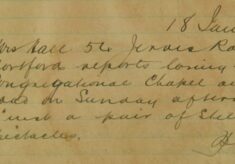 18 Jan
Mrs Hall 56 Jervis Ro
ortford reports losing
ongregational Chapel
on Sunday aftern
a pair of Ste
ectacles.